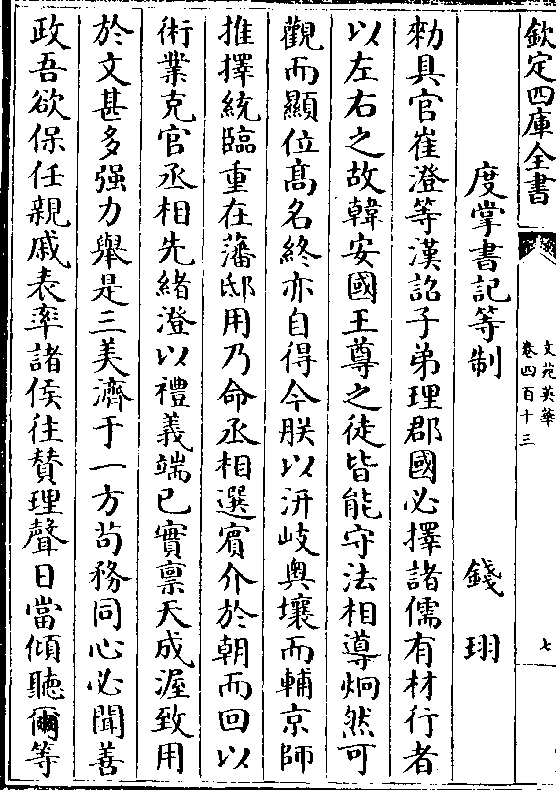 欽定四庫全書
文苑英華
卷四百十三
七
度掌書記等制
錢珝
勑具官崔澄等漢詔子弟理郡國必擇諸儒有材行者
以左右之故韓安國王尊之徒皆能守法相導炯然可
觀而顯位髙名終亦自得今朕以汧岐奥壤而輔京師
推擇統臨重在藩邸用乃命丞相選賔介於朝而回以
術業克官丞相先緒澄以禮義端已實禀天成渥致用
於文甚多强力舉是三美濟于一方茍務同心必聞善
政吾欲保任親戚表率諸侯往賛理聲日當傾聽爾等